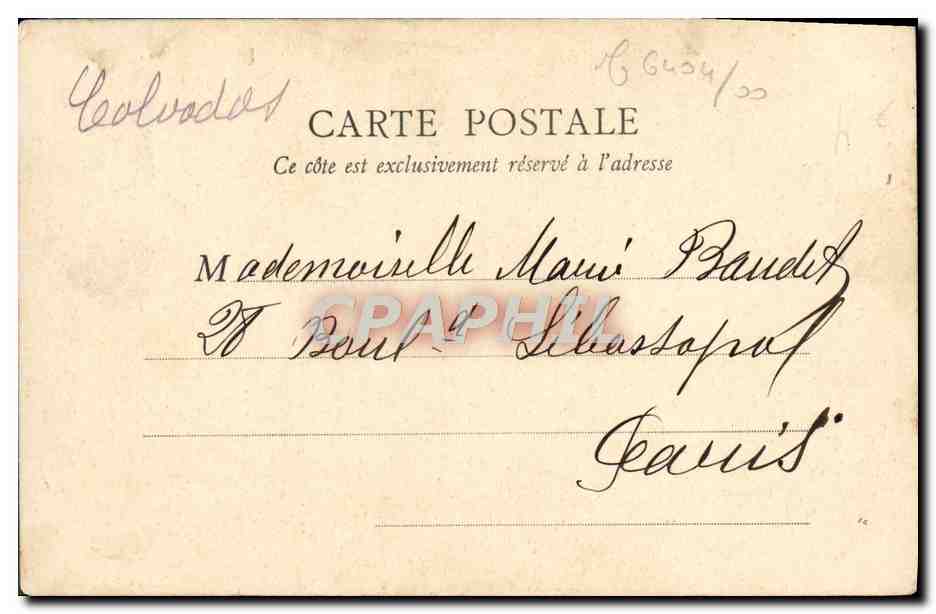 Calvados
CARTE POSTALE
Ce côte est exclusivement réservé à l'adresse
Mademoiselle Marie Baudet
28 Boul-d Sébastopol
Paris
CPAPHIL